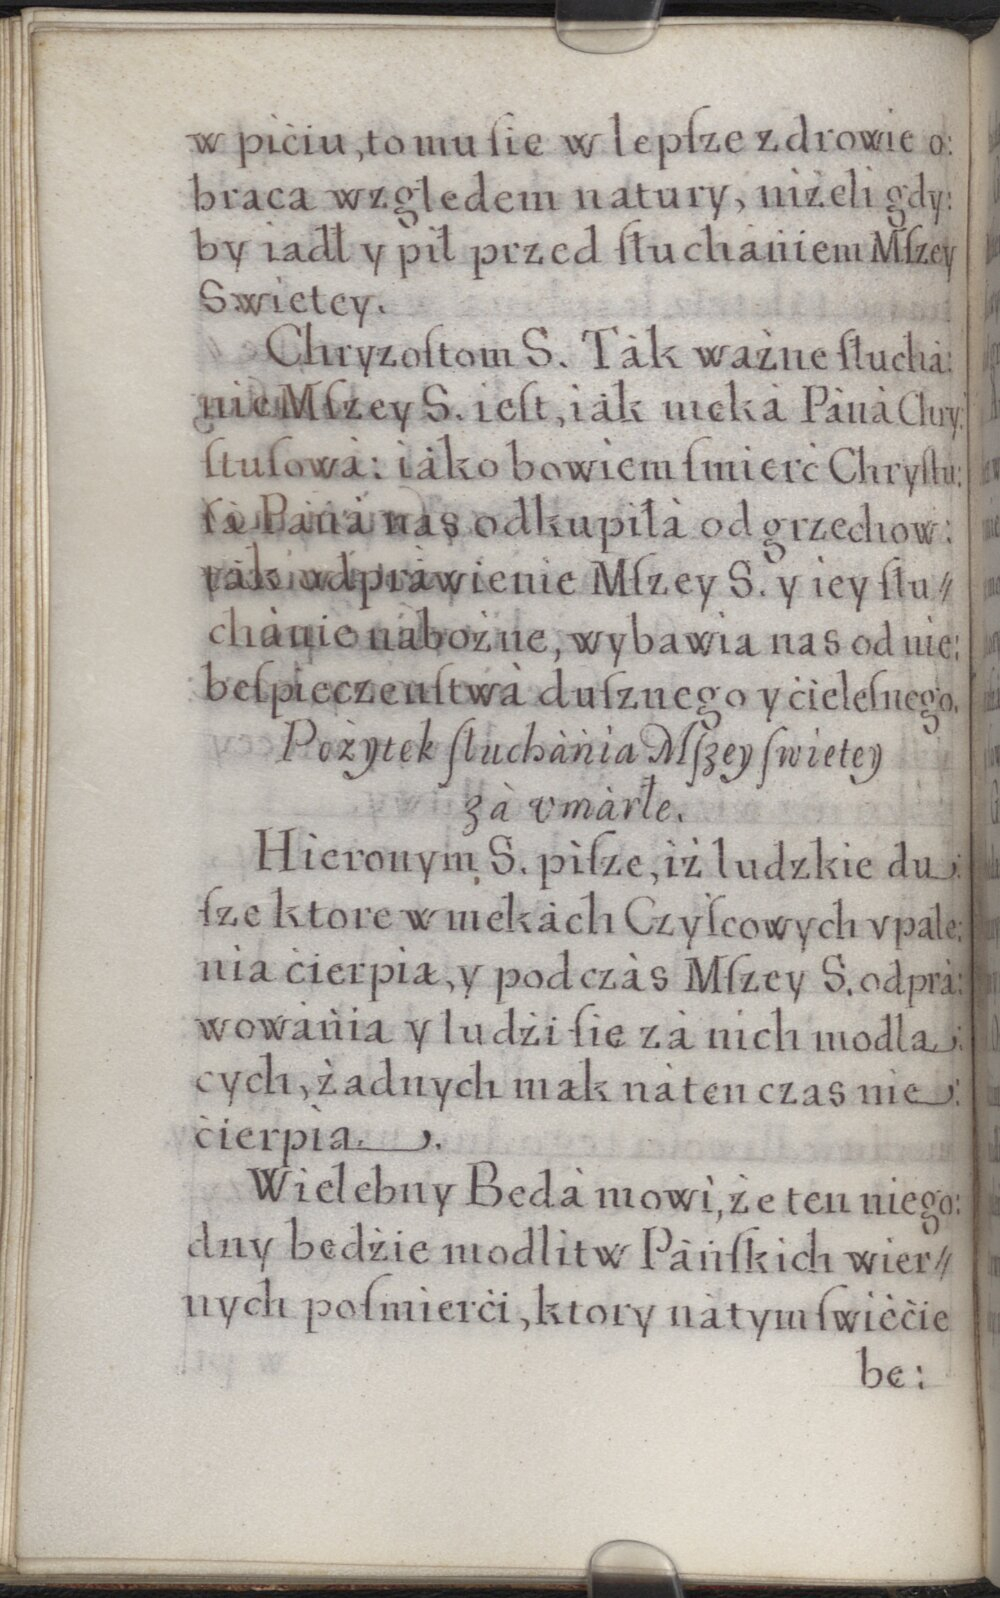 w pićiu, to mu ſie w lepſze zdrowie o:
braca wzgledem natury, niżeli gdy:
by iadł y pił przed ſłuchàńiem Mſzey
Swietey.
Chryzoſtom S. Tàk ważne ſłuchà:
nie Mſzey S. ieſt, iàk mekà Pànà Chry:
ſtuſowà: iàko bowiem ſmierć Chryſtu:
ſà Pànà nas odkupiłà od grzechow:
tàk odpràwienie Mſzey S. y iey ſłu//
chànie nàbożne, wybawia nas od nie:
beſpieczenſtwà duſznego y ćieleſnego.
Pożytek ſłuchàńia Mſzey ſwietey
zà vmàrłe.
Hieronym S. piſze, iż ludzkie du:
ſze ktore w mekàch Czyſcowych vpale:
nia ćierpia, y podczàs Mſzey S. odprà:
wowàńia y ludźi ſie zà nich modla:
cych, żadnych mak nàten czas nie:
ćierpia.
Wielebny Bedà mowi, że ten niego:
dny bedżie modlitw Pàńſkich wier//
nych poſmierći, ktory nàtym ſwiećie
be: